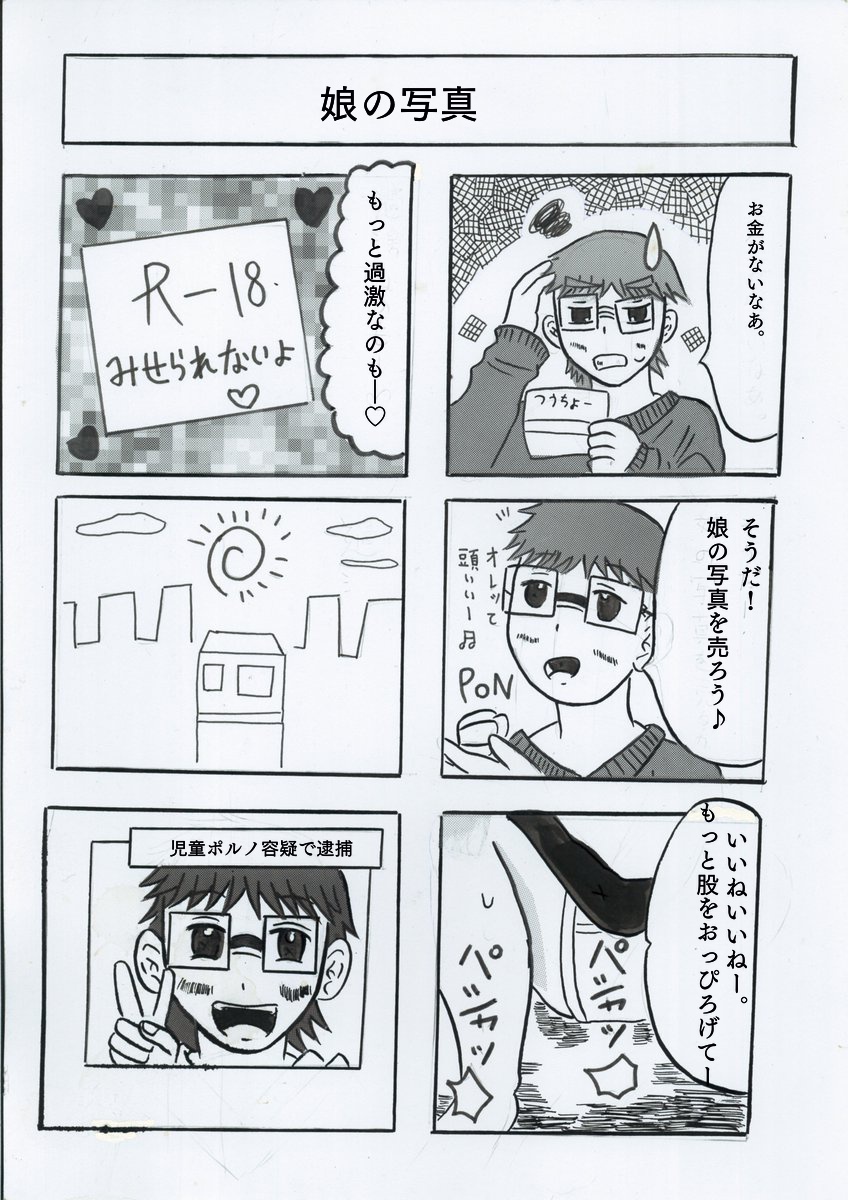 娘の写真
お金がないなあ。
つうちょー
そうだ!
娘の写真を売ろう♪
オレって
頭いいー♫
PoN
いいねいいねー。
もっと股をおっぴろげてー
パシャッ
パシャッ
もっと過激なのもー♡
R-18.
みせられないよ
♡
児童ポルノ容疑で逮捕